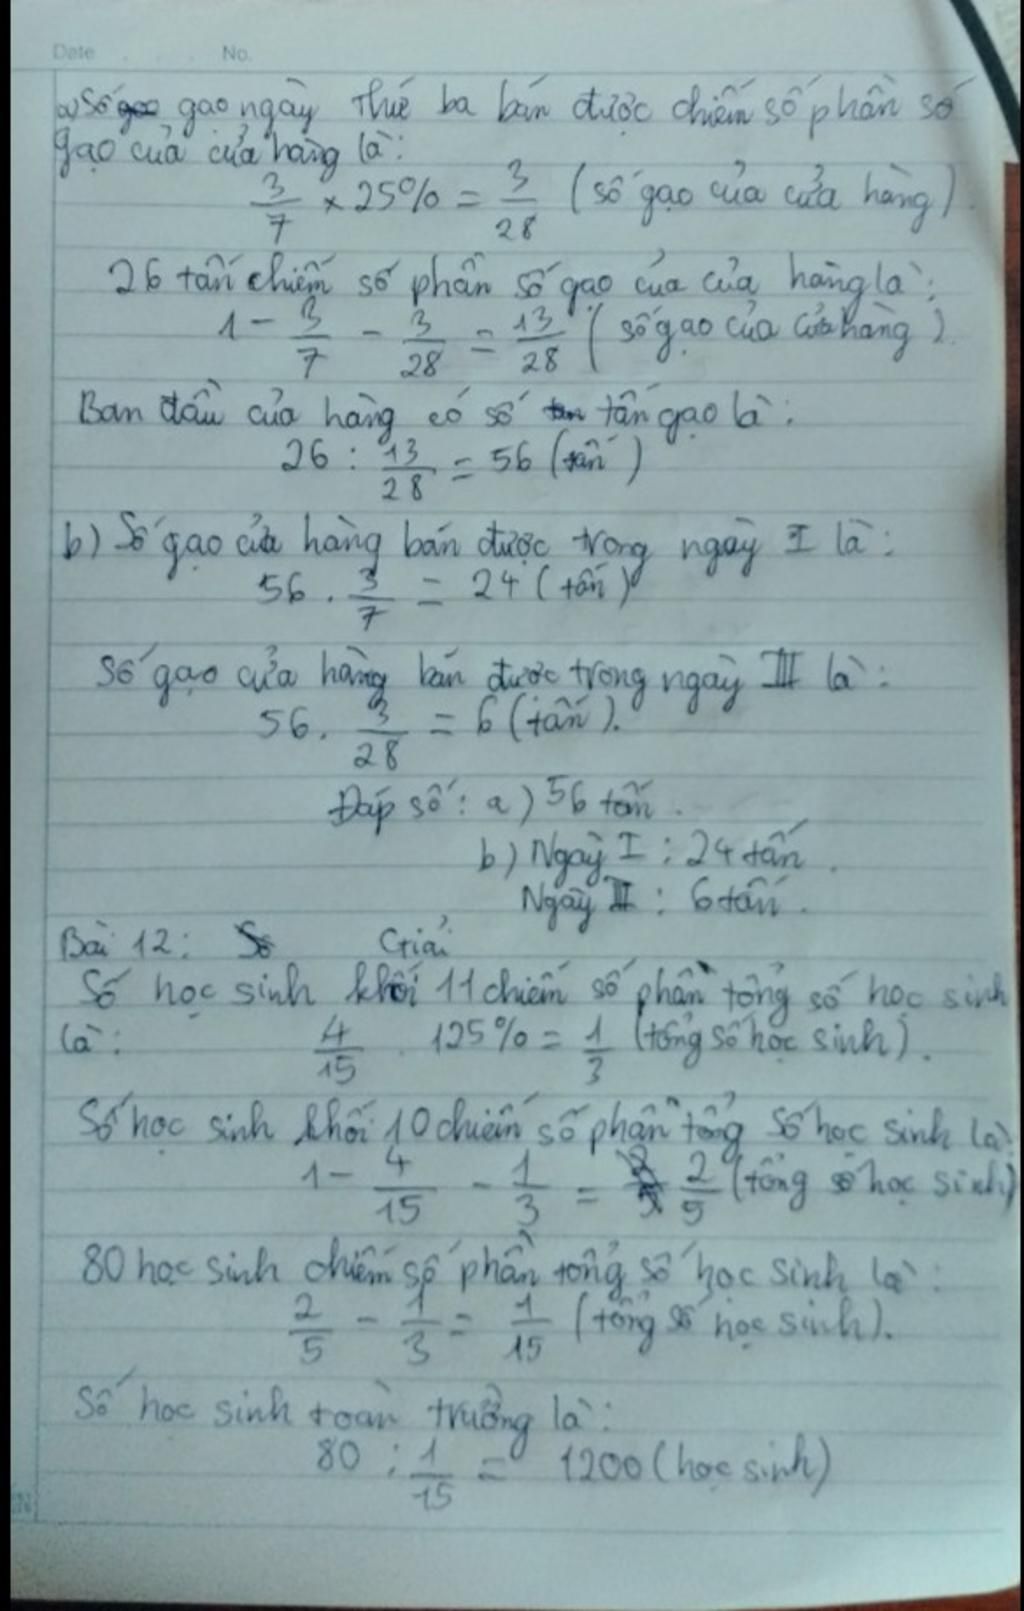 Date No.
a) Số gạo ngày thứ ba bán được chiếm số phần số
gạo của cửa hàng là:
3/7 × 25% = 3/28 (số gạo của cửa hàng).
26 tấn chiếm số phần số gạo của cửa hàng là:
1 - 3/7 - 3/28 = 13/28 (số gạo của cửa hàng).
Ban đầu cửa hàng có số tấn gạo là:
26 : 13/28 = 56 (tấn)
b) Số gạo cửa hàng bán được trong ngày I là:
56 . 3/7 = 24 (tấn)
Số gạo cửa hàng bán được trong ngày III là:
56 . 3/28 = 6 (tấn).
Đáp số: a) 56 tấn.
b) Ngày I : 24 tấn.
Ngày III : 6 tấn.
Bài 12: Giải
Số học sinh khối 11 chiếm số phần tổng số học sinh
là: 4/15 . 125% = 1/3 (tổng số học sinh).
Số học sinh khối 10 chiếm số phần tổng số học sinh là:
1 - 4/15 - 1/3 = 2/5 (tổng số học sinh)
80 học sinh chiếm số phần tổng số học sinh là:
2/5 - 1/3 = 1/15 (tổng số học sinh).
Số học sinh toàn trường là:
80 : 1/15 = 1200 (học sinh)